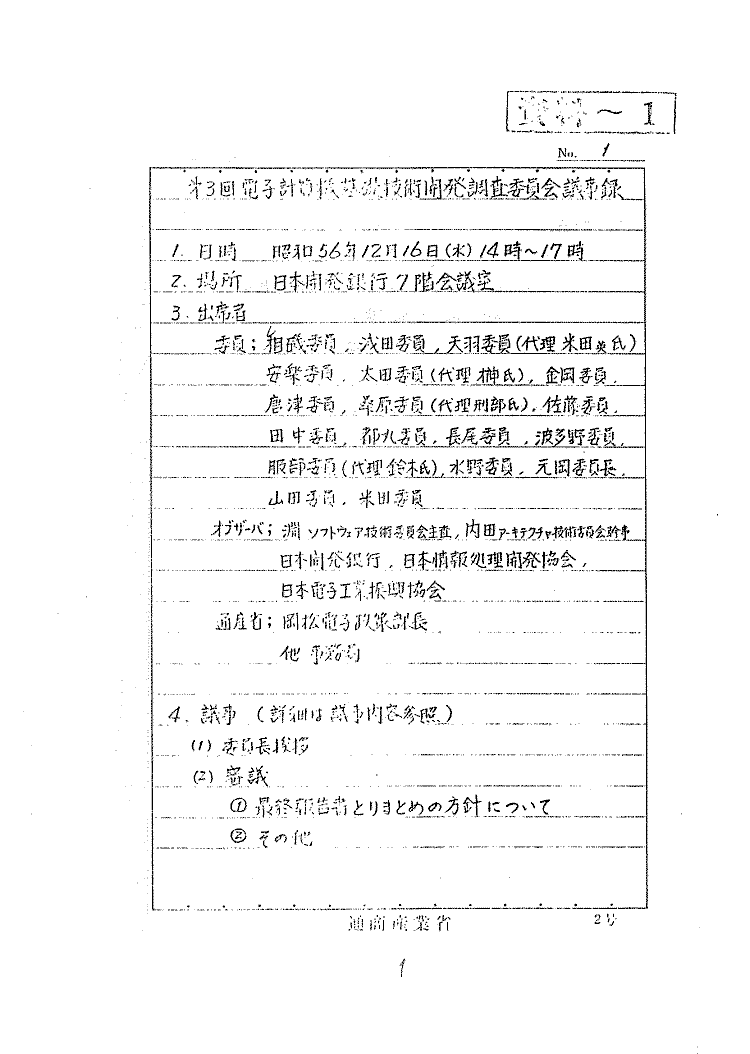 資料〜1
No. 1
第3回電子計算機基礎技術開発調査委員会議事録
1. 日時 昭和56年12月16日(水)14時〜17時
2. 場所 日本開発銀行7階会議室
3. 出席者
委員;相磯委員, 浅田委員, 天羽委員(代理 米田英氏)
安楽委員, 太田委員(代理 榊氏), 金岡委員,
唐津委員, 桑原委員(代理刑部氏), 佐藤委員,
田中委員, 都丸委員, 長尾委員, 波多野委員,
服部委員(代理鈴木氏), 水野委員, 元岡委員長,
山田委員, 米田委員
オブザーバ; 淵 ソフトウェア技術委員会主査, 内田アーキテクチャ技術委員会幹事
日本開発銀行, 日本情報処理開発協会,
日本電子工業振興協会
通産省; 岡松電子政策課長
他 事務局
4. 議事 (詳細は議事内容参照)
(1) 委員長挨拶
(2) 審議
① 最終報告書とりまとめの方針について
② その他
通商産業省
2号
1